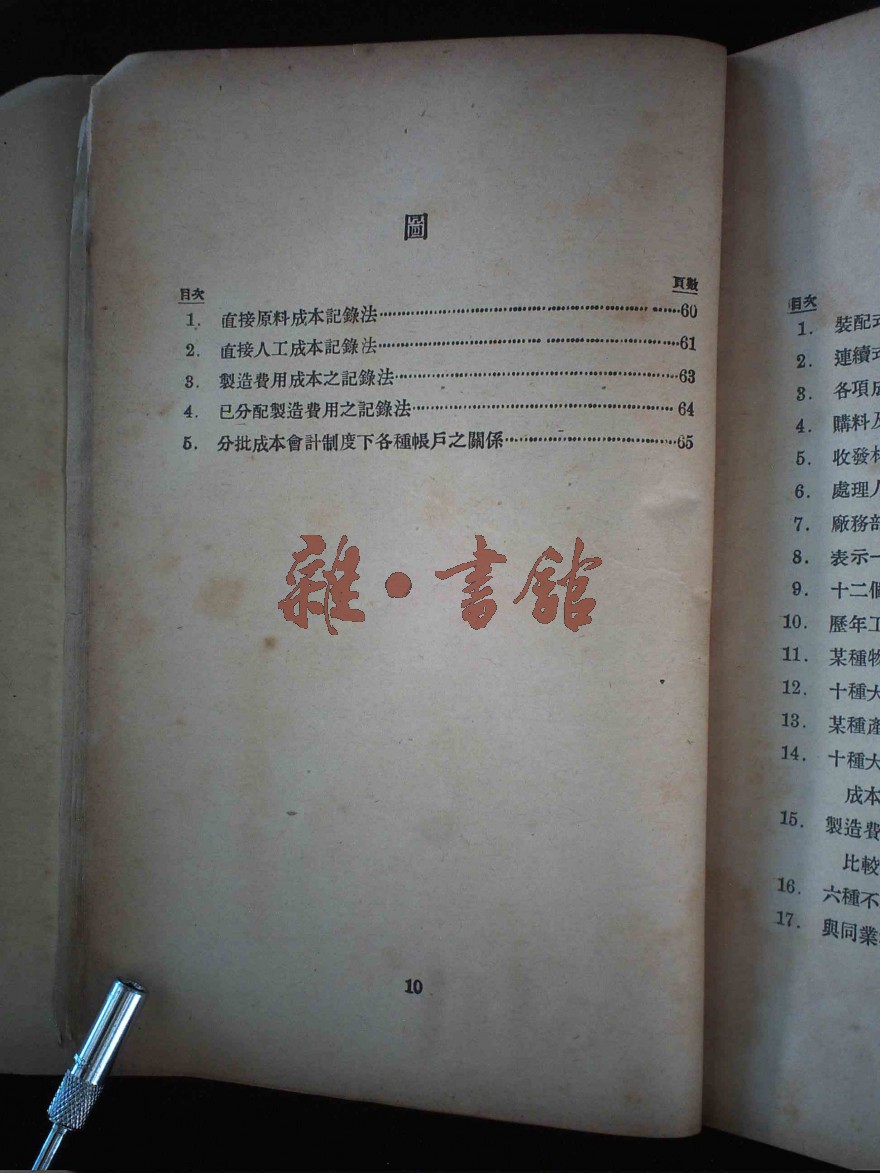 圖
目次 頁數
1. 直接原料成本記錄法 60
2. 直接人工成本記錄法 61
3. 製造費用成本之記錄法 63
4. 已分配製造費用之記錄法 64
5. 分批成本會計制度下各種帳戶之關係 65
雜·書館
10
目次
1. 裝配式
2. 連續式
3. 各項成
4. 購料及
5. 收發材
6. 處理人
7. 廠務部
8. 表示一
9. 十二個
10. 歷年工
11. 某種物
12. 十種大
13. 某種產
14. 十種大
成本
15. 製造費
比較
16. 六種不
17. 與同業